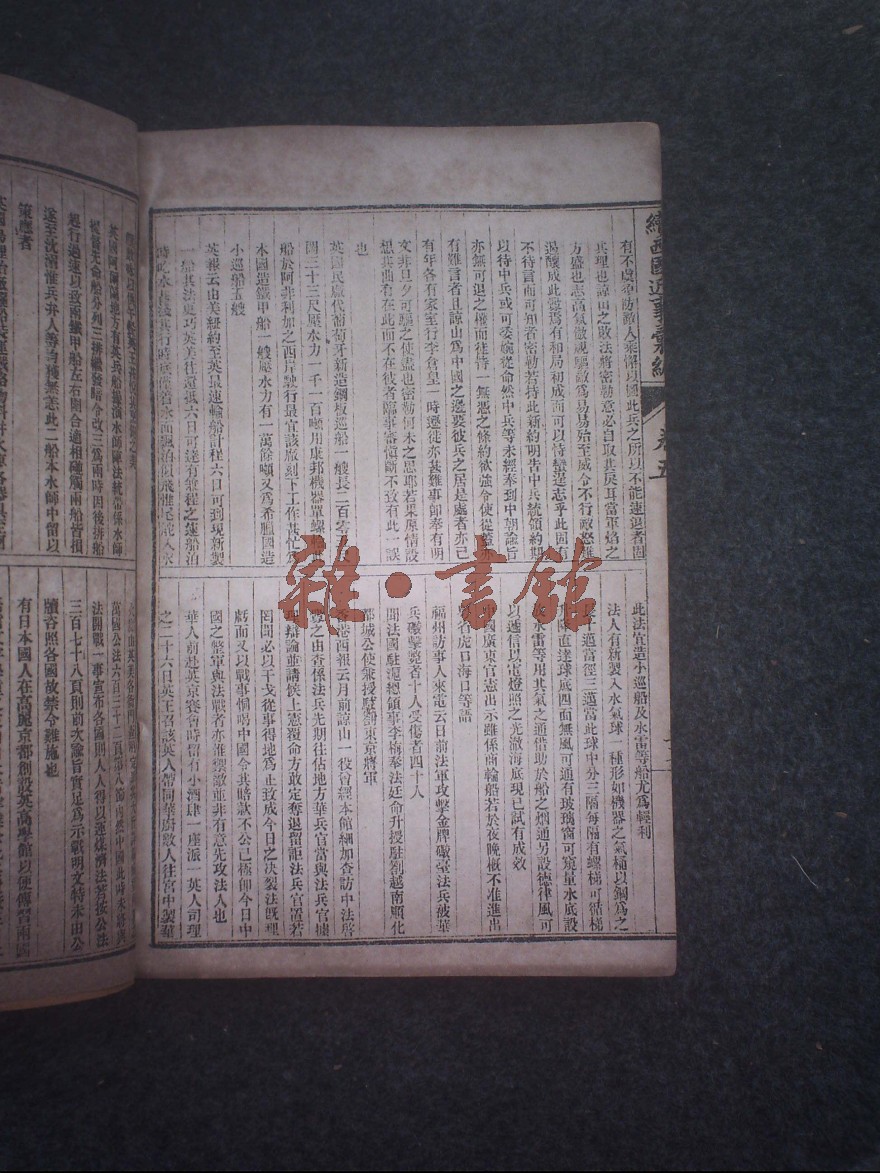 續西國近事彙編
卷五
有不虞律防敵人乘懈以圖此兵之所以不能速退者固
兵理也諒山之敗法將密勒必自取其戾耳當軍焰之
方盛也志高氣敵視驅敵為易易始至威令不行敵怒難
過釀成此釁焉有和局初成而可以恃蠻逞志乎此固有
不待言而可知者密勒若持此新約明告中兵統領約期
以待中兵或可委婉從命然中兵等未經奉到中朝諭旨
亦無可退之權而徒恃一無憑之條約欲強令使從蓋亦
有難言者且諒山為中國之邊要彼兵之居是處者亦已
有年各有家室行李倉皇一時遷徙亦甚難事卸奉有明
文非旦夕可驅之使盡也密勒何未之思耶若果原情設
想其曲有在此而不在彼者臨事審慎斷不致有此一誤
也
英國民廠代葡萄牙新造鋼板巡船一艘長二百零
圍三十三尺壓水力一千一百噸用康邦機器單螺
船於阿非利加之西岸駛行最宜該廠刻下工作甚忙
本國造鐵甲船一艘壓水力有一萬餘噸又為希臘國造
小巡船五艘
英報云由美紐約至英最速輪船計程六日可到現新製
一船其法更巧英美往還抵六日可達有常程之速船泊
此法宜造小巡船及水雷等船尤為輕利
法人有新製入水氣球一種形如機器之氣桶以鋼為之
長 邁當徑三邁當此球中外三隔每隔有螺梯可循梯
而 直達球底四面無風可通有玻璃窗可窺量水底設
放水雷等用其氣之通借助於船之烟通另設德律風可
以遞信以電燈照之光澈海底現已試有成效
中國廣東官憲出示雖係商輪船若於夜晚概不准進出
粵省虎口海口等語
福州訪事人來電云日前法軍攻擊金牌礮臺法兵被華
兵礮擊斃者十人受傷者四十人
聞法國駐滬總領事李梅奉法廷命升授駐劄越南順化
都城公使兼授駐劄東京將軍
香港西報云月前諒山一役曾經本館細加查訪中法啓
釁之由查係法兵先期往佔地方華兵官當與法兵官據
理辯論並請候上憲覆命方敢定奪退留詎法兵官置若
罔聞必以干戈從事得地為止致成今日之決裂法既理
虧而又以戰事恫喝中國令其賠款不公已極卸今日中
國之整軍與法戰者亦誰激並非有意先攻法人也
華人前赴英京賽會時留有小酒肆一座派一英人司理
之二十六日英王召該英人帶同華廚數人往宮中製華
雜·書館
英國 地方有英兵船操演水師陣法統帶係水師
提督先命船分列三排繼發暗令改三為兩時因後排船
駛行過速以致兩鐵甲船左右開合適相碰觸兩船皆損
遂至沈溺惟兵弁人等均獲無恙此二船本水師中留以
策應者
萬國公法六百三十二頁第八節內然中國此時未將與
法開戰一事宣布各國則人人得以運煤濟法若按公法
三百七十八頁則前次諭旨實足為示嚴明文特未由公
牘咨照各國故禁令難施也
有日本國人在高麗京都創設英高學館以便傳習兩國